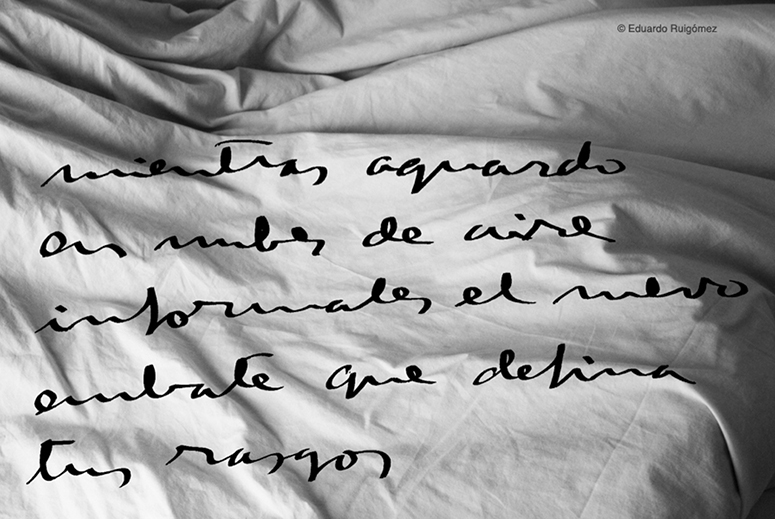 © Eduardo Ruigómez
mientras aguardo
en nubes de aire
informales el nuevo
embate que defina
tus rasgos